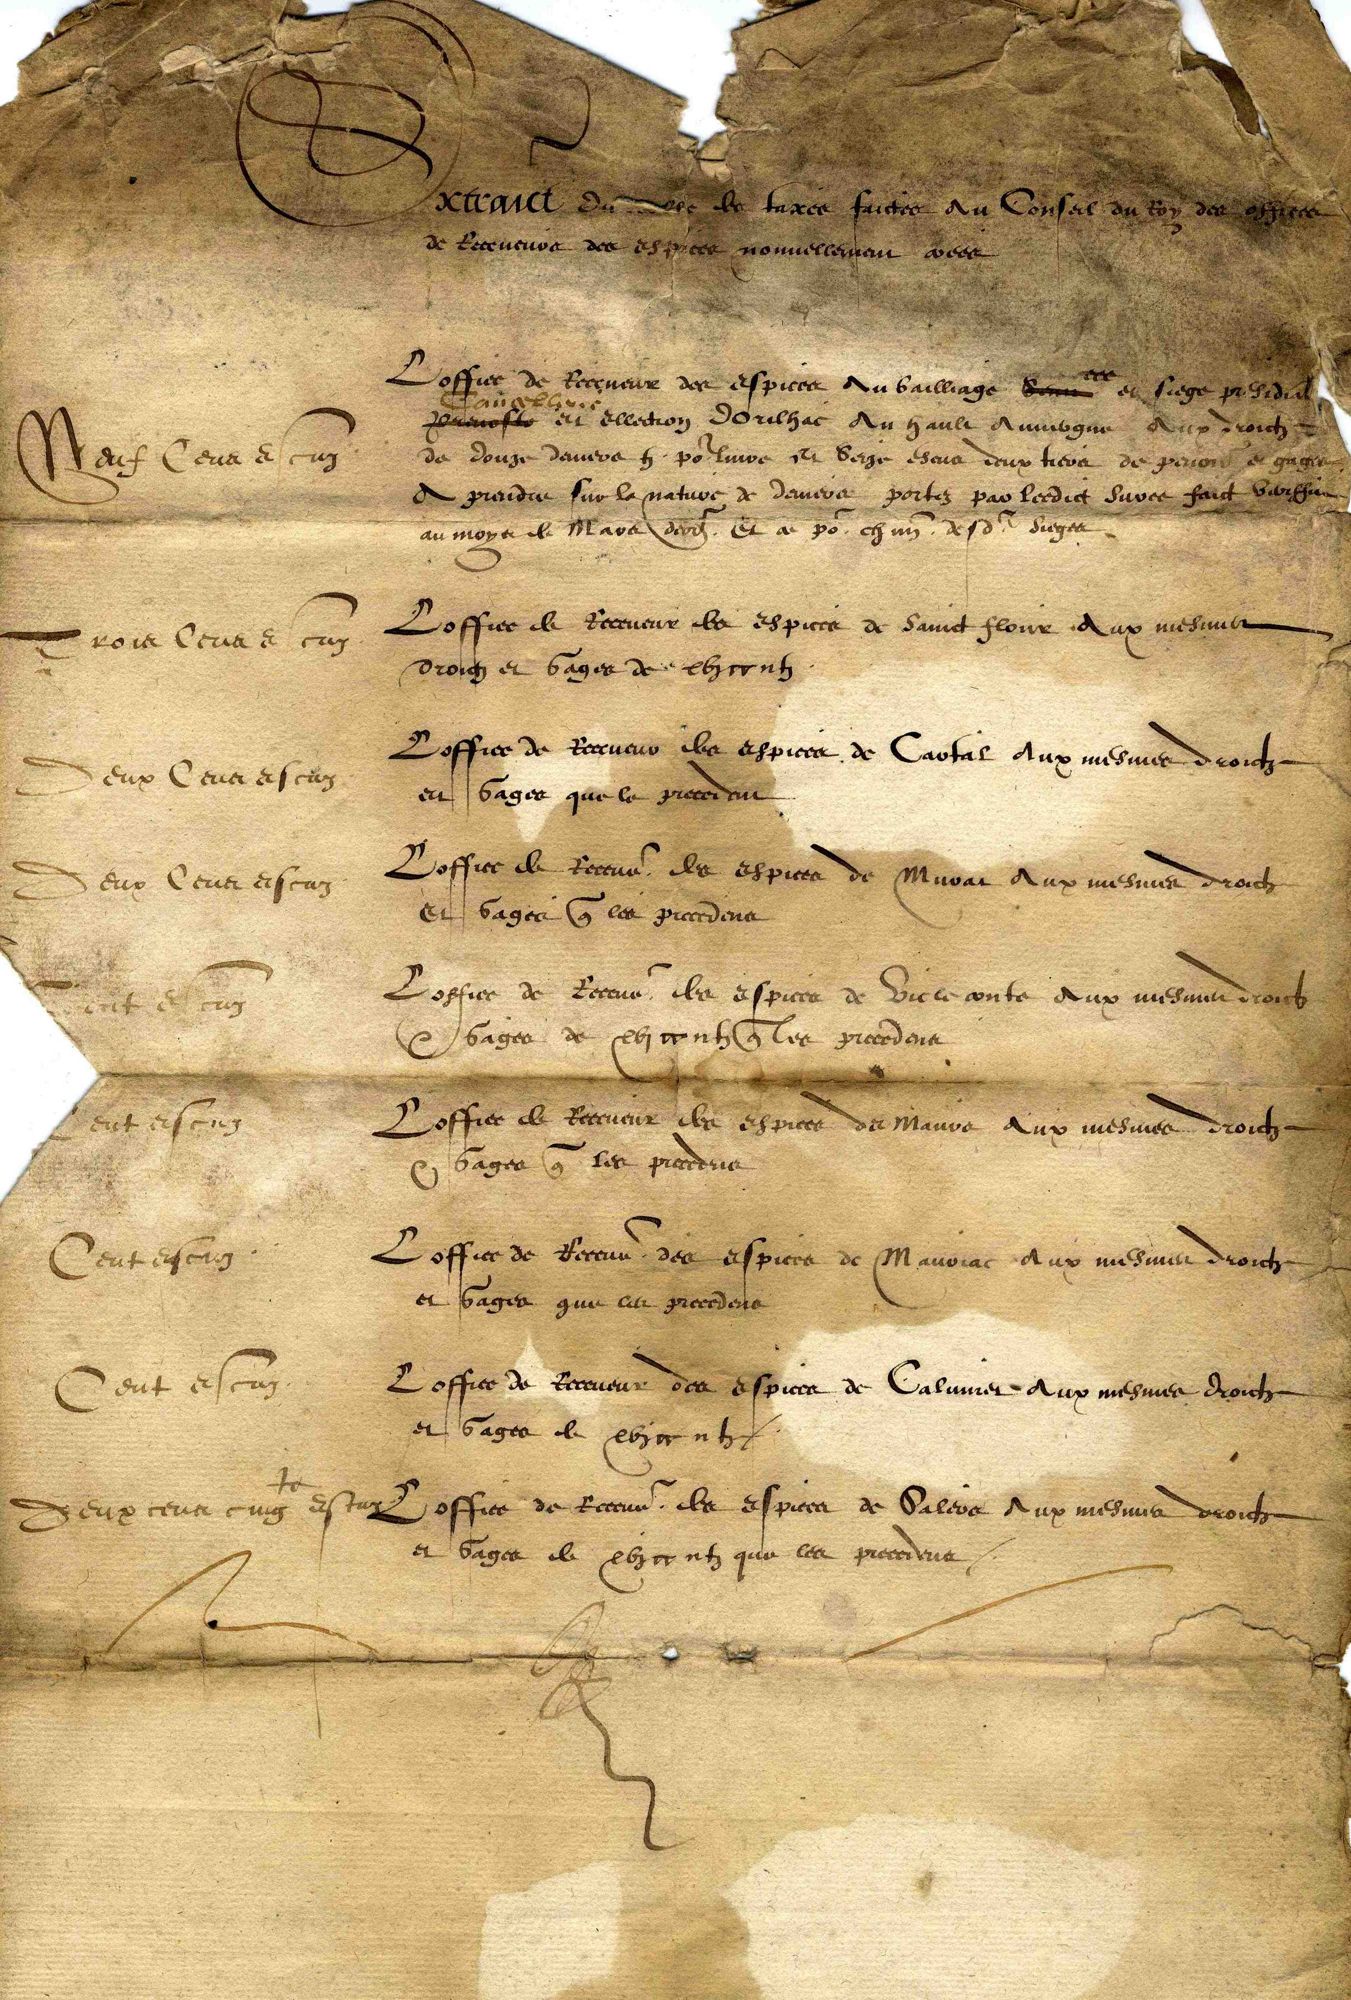 Extraict du des taxes faictes au Conseil du Roy des offices
de Receveurs des espices nouvellement crees
Neuf Cens escuz
L'office de Receveur des espices au bailliage et siege presidial
Chancellerie
Prevosté et ellection d'Orilhac au hault auvergne aux droictz
de douze deniers pour livre et seize escus deux tiers de gages
a prendre sur la nature de deniers portez par ledict faict
au moys de Mars Et ce sieges
Trois Cens escuz
L'office de Receveur des espices de Sainct flour aux mesmes
droictz et gages de xvj
Deux Cens escuz
L'office de Receveur des espices de Carlat aux mesmes droictz
et gages que le precedent
Deux Cens escuz
L'office de Recev^r des espices de Murat aux mesmes droictz
et gages q les precedens
Cent escuz
L'office de Recev^r des espices de Vic le conte aux mesmes droictz
& gages de xvj q les precedens
Cent escuz
L'office de Receveur des espices de Maurs aux mesmes droictz
& gages q les precedens
Cent escuz
L'office de Recev^r des espices de Mauriac aux mesmes droictz
et gages que les precedens
Cent escuz
L'office de Receveur des espices de Calvinet aux mesmes droictz
et gages de xvj
Deux cens cinq^te escuz
L'office de Recev^r des espices de Salers aux mesmes droictz
et gages de xvj que les precedens